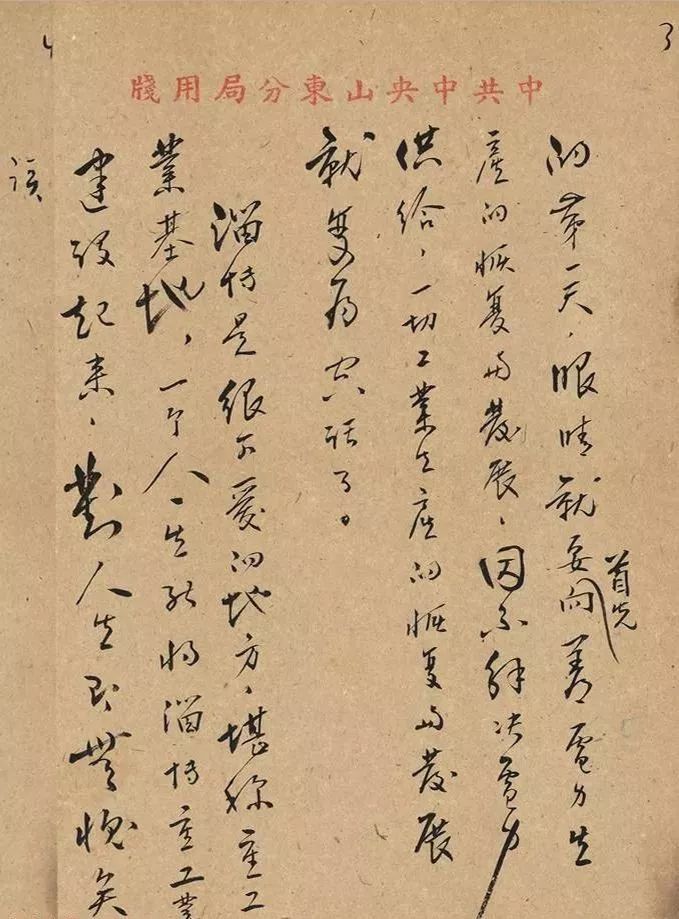 中共中央山東分局用牋
3
的第一天，眼睛就要首先向着電力生
產的恢复与發展，因不解決電力
供給，一切工業生產的恢复与發展
就变为空话了。
淄博是很可爱的地方，堪称重工
業基地，一个人一生能将淄博重工業
建设起来，對人生即無愧矣